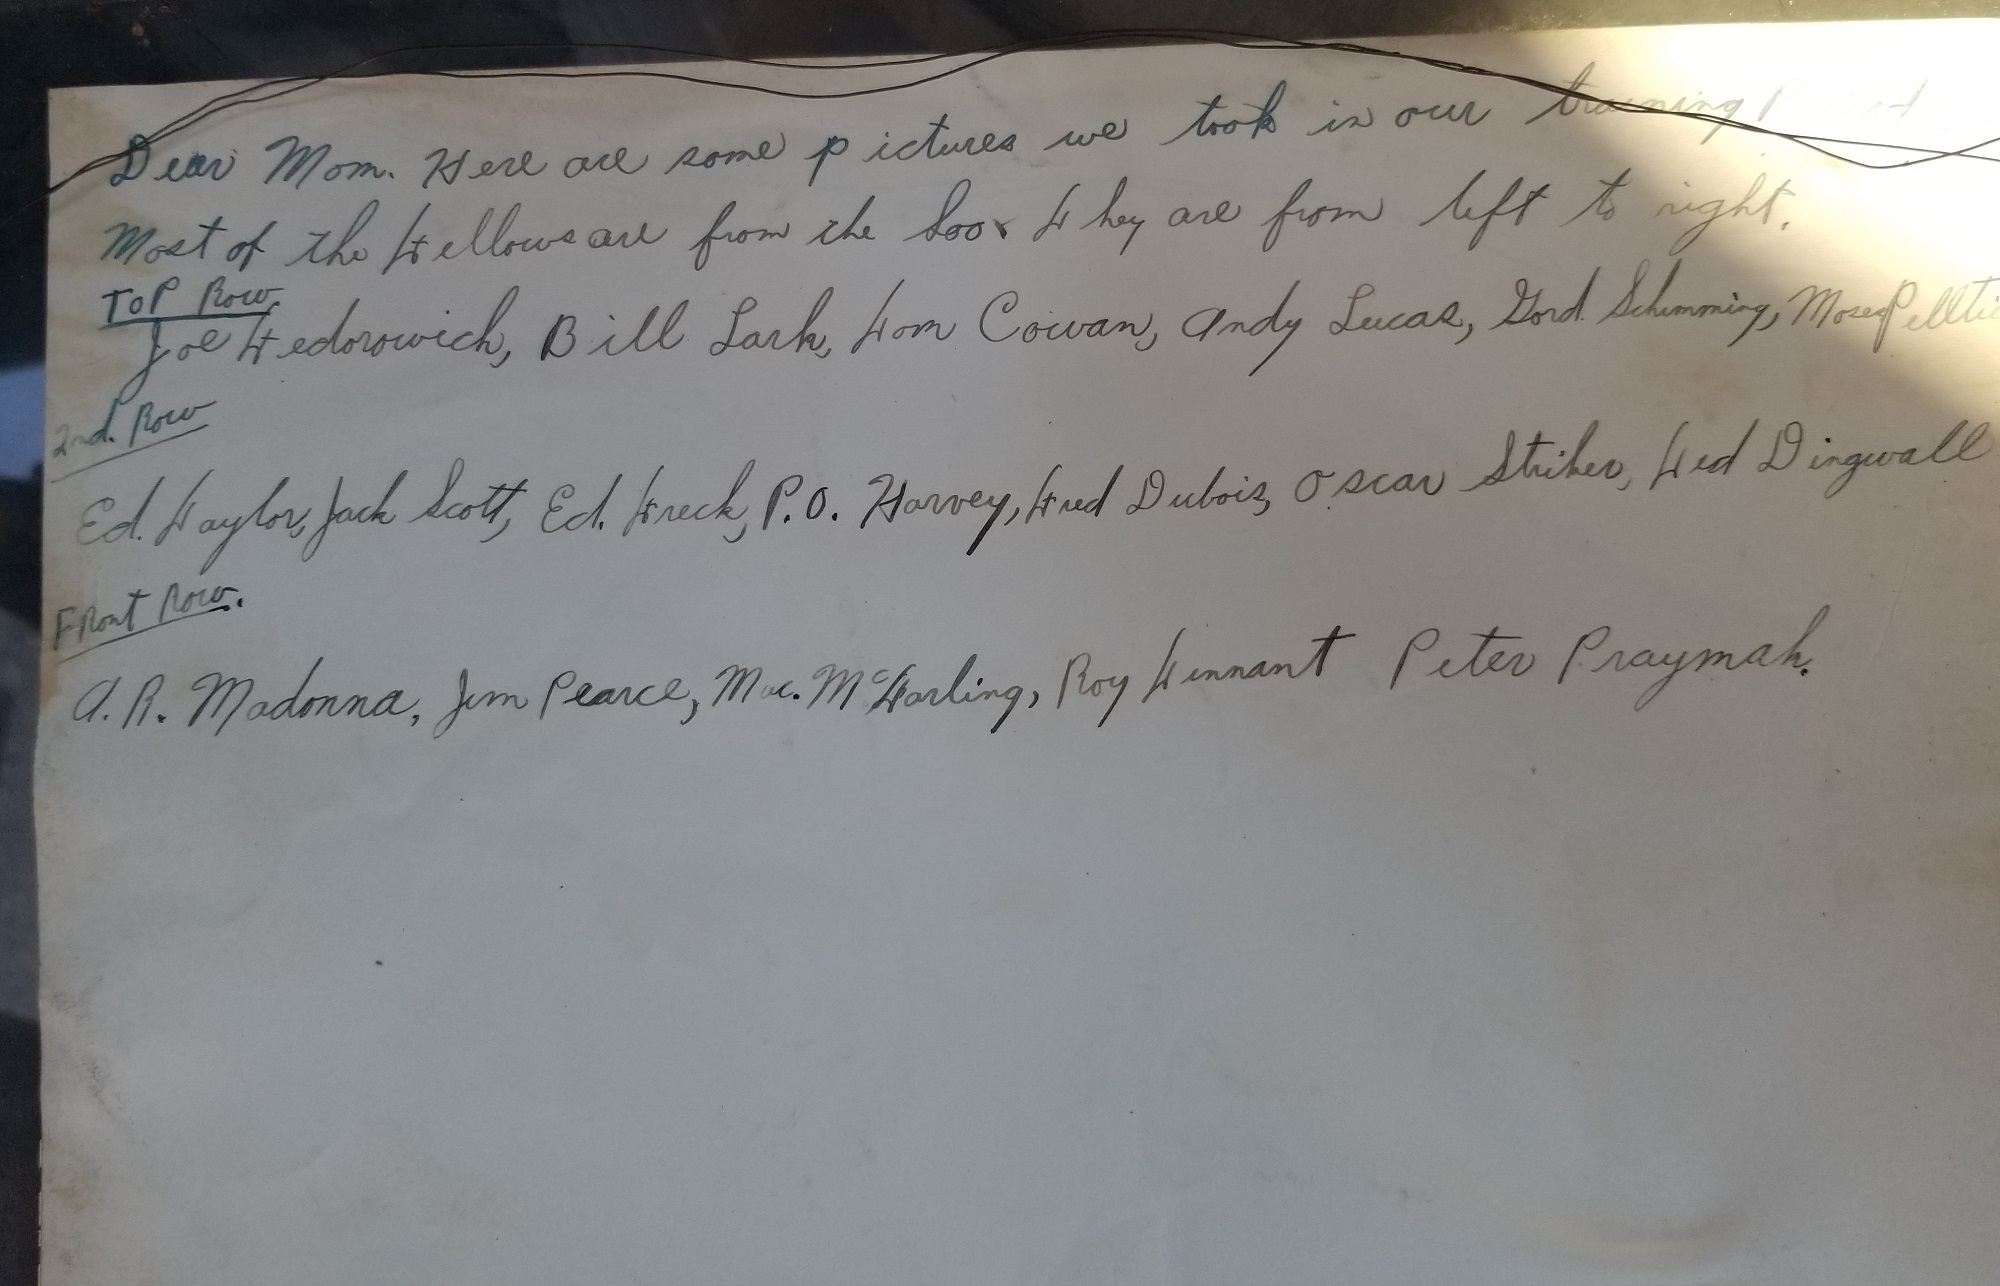 Dear Mom. Here are some pictures we took in our training
Most of the Fellows are from the Soo. They are from left to right.
Top Row
Joe Fedorowich, Bill Lark, Tom Cowan, Andy Lucas, Gord Schimming, Moses Pelltie
2nd. Row
Ed. Taylor, Jack Scott, Ed. Freck, P.O. Harvey, Fred Dubois, Oscar Striker, Ted Dingwall
Front Row.
A. R. Madonna, Jim Pearce, Mac. McFarling, Roy Tennant Peter Praymak.